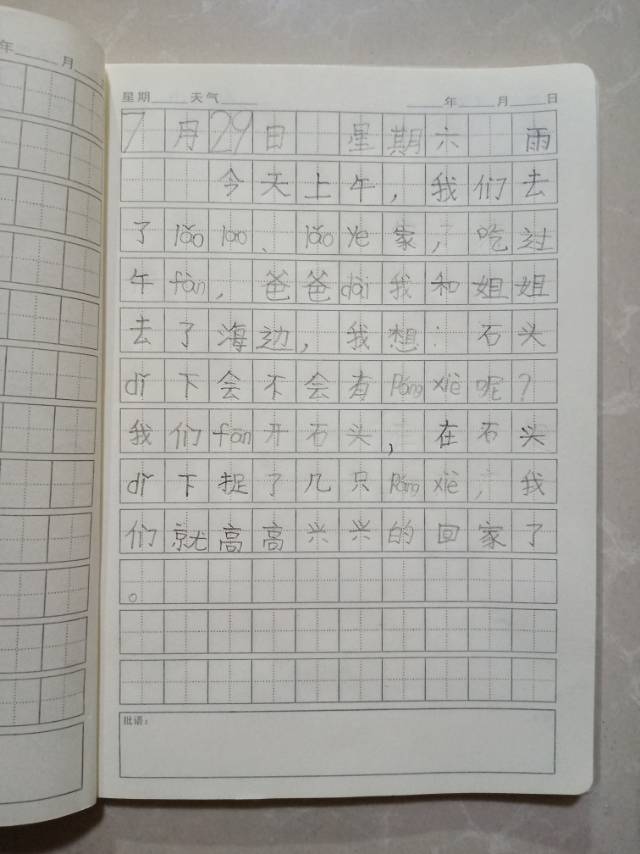 年 月
星期 天气 年 月 日
7月29日 星期六 雨
今天上午，我们去
了lǎo lao、lǎo ye家，吃过
午fàn，爸爸dài我和姐姐
去了海边，我想：石头
dǐ下会不会有Páng xiè呢？
我们fān开石头，在石头
dǐ下捉了几只Páng xiè，我
们就高高兴兴的回家了
。
批语：